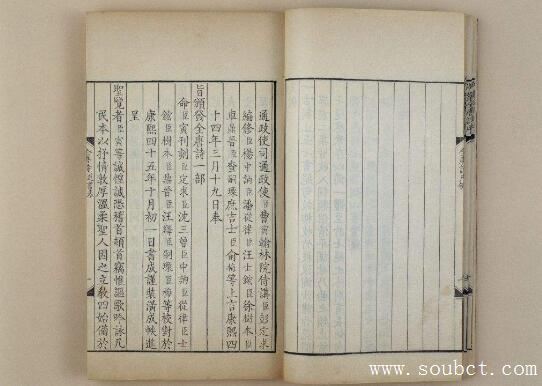 通政使司通政使臣曹寅翰林院侍講臣彭定求
編修臣楊中訥臣潘從律臣汪士鋐臣徐樹本臣
車鼎晉臣查嗣瑮庶吉士臣俞梅等上言康熙四
十四年三月十九日奉
旨頒發全唐詩一部
命臣寅刊刻臣定求臣沈三曾臣中訥臣從律臣士
鋐臣樹本臣鼎晉臣汪繹臣嗣瑮臣梅等校對於
康熙四十五年十月初一日書成謹裝潢成帙進
呈
聖覽者臣寅等誠惶誠恐稽首頓首竊惟謳歌吟詠凡
民本以抒情敦厚溫柔聖人因之立教四始備於
www.soubct.com